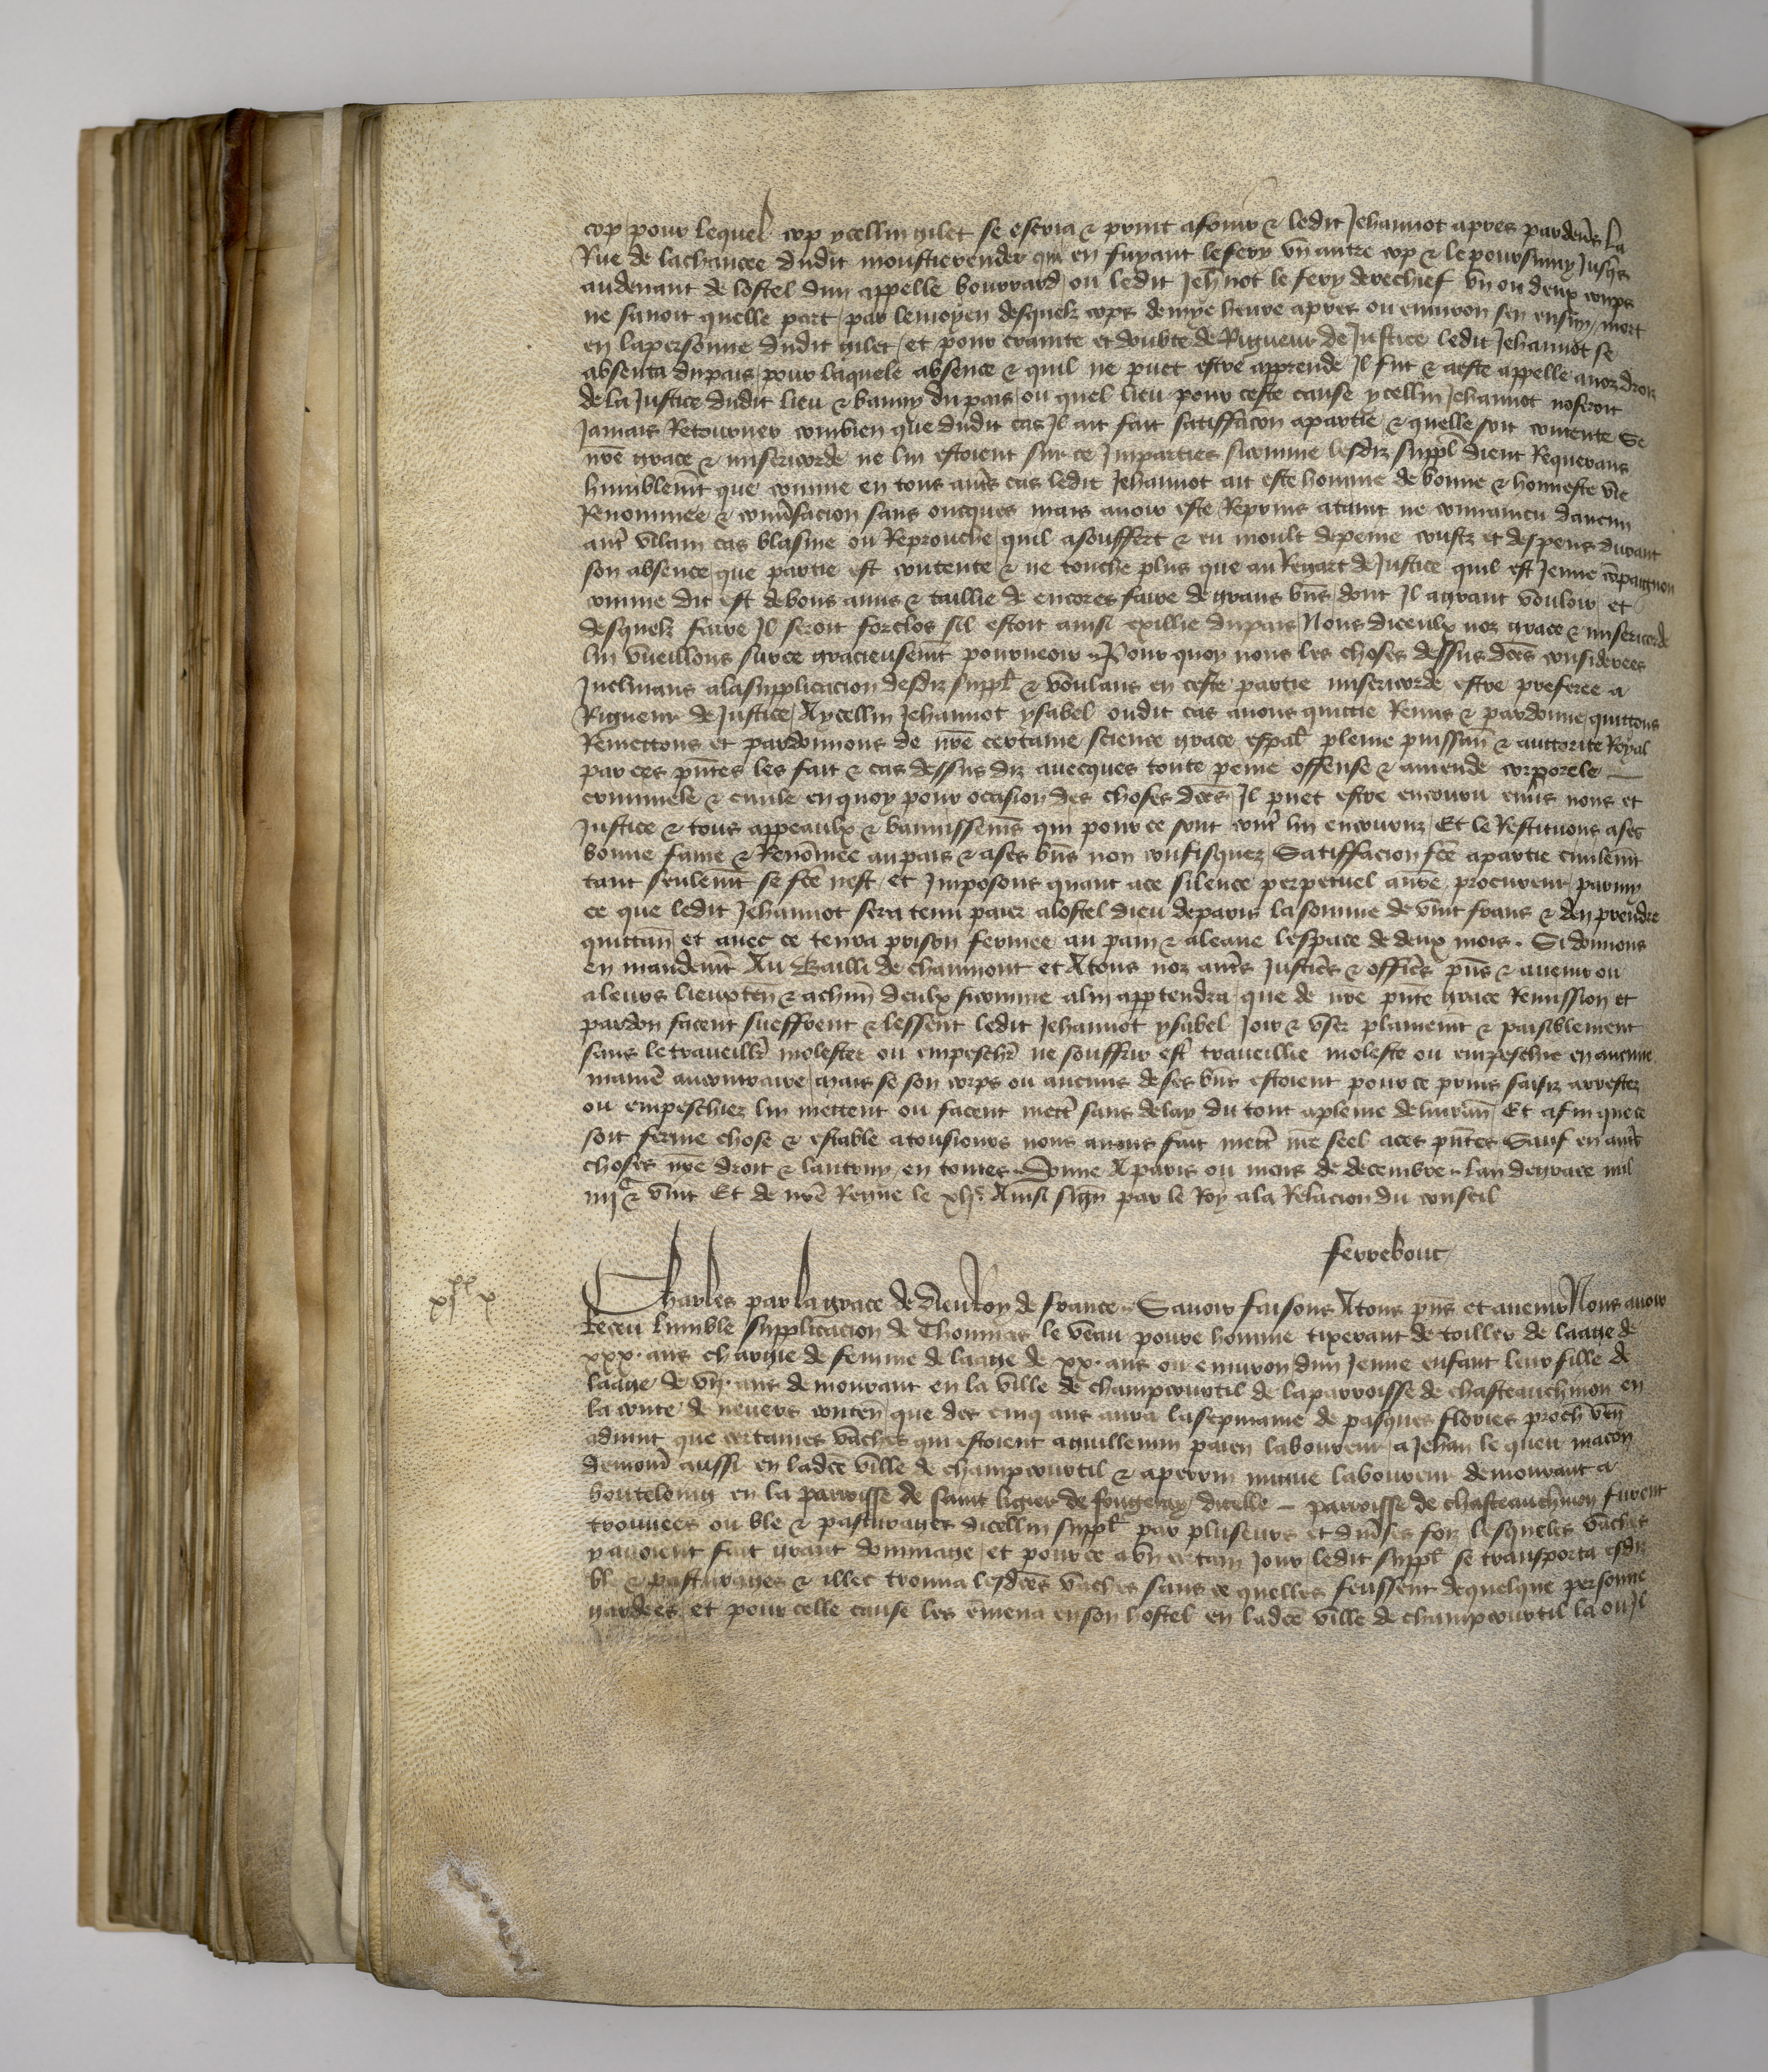 cop pour lequel cop ycellin gilet se escria & print a fouir & ledit Jehannot apres par deuers la
Rue de la chaucee dudit moustierender qui en fuyant le fery vn autre cop & le poursuiuy jusqs
au deuant de lostel dun appelle bourrard ou ledit Jehnot le fery derechief vn ou deux cops
ne sauoit quelle part par le moyen desquelz cops demye heure apres ou enuiron sen ensuy mort
en la personne dudit gilet et pour crainte et doubte de Rigueur de Justice ledit Jehannot se
absenta du pais pour laquele absence & quil ne puet estre apprende Il fut & a este appelle a noz droiz
de la Justice dudit lieu & banny du pais ou quel lieu pour ceste cause ycellin Jehannot noseroit
Jamais Retourner combien que dudit cas Il ait fait satiffacon a partie & quelle soit contente Se
nre grace & misericorde ne lui estoient sur ce Imparties sicomme lesdiz suppl dient Requerans
humblemt que comme en tous autrs cas ledit Jehannot ait este homme de bonne & honneste vie
Renommee & conusacion sans oncques mais auoir este Reprins ataint ne conuaincu daucun
autr vilain cas blasme ou Reprouche quil a souffert & eu moult de peine coustz et despens durant
son absence que partie est contente & ne touche plus que au Regart de Justice quil est Jeune copaignon
comme dit est de bons amis & taillie de encores faire de grans bns dont Il a grant vouloir et
desquelz faire Il seroit forclos sil estoit ainsi exillie du pais Nous diceulx noz grace & misericorde
lui vueillons sur ce gracieusemt pourueoir Pour quoy nous les choses dessus dces considerees
Inclinans a la supplicacion desdiz suppl & voulans en ceste partie misericorde estre preferee a
Rigueur de Justice A ycellin Jehannot ysabel oudit cas auons quittie Remis & pardonne quittons
Remettons et pardonnons de nre certaine science grace espal pleine puissan & auttorite Royal
par ces pntes les fait & cas dessus diz auecques toute peine offense & amende corporele
criminele & ciuile en quoy pour occasion des choses dces Il puet estre encouru enuers nous et
Justice & tous appeaulx & bannissems qui pour ce sont contr lui encouruz Et le Restituons a ses
bonne fame & Renomee au pais & a ses bns non confisquez Satiffacion fce a partie ciuilemt
tant seulemt se fce nest et Imposons quant a ce silence perpetuel a nre procureur parmy
ce que ledit Jehannot sera tenu paier a lostel dieu de paris la somme de vint frans & den prendre
quittan et auec ce tenra prison fermee au pain & a leaue lespace de deux mois Si donnons
en mandemt Au Bailli de chaumont et A tous noz autrs Justics & offics pns & auenir ou
a leurs lieuxten & a chun deulx sicomme a lui apptendra que de nre pnte grace Remission et
pardon facent sueffrent & lessent ledit Jehannot ysabel Joir & vser plainemt & paisiblement
sans le traueillr molester ou empeschr ne souffrir estr traueillie moleste ou empeschie en aucune
manie au contraire mais se son corps ou aucuns de ses bns estoient pour ce prins saisiz arrestez
ou empeschiez lui mettent ou facent mettr sans delay du tout a pleine deliuran Et afin que ce
soit ferme chose & estable a tousiours nous auons fait mettr nre seel a ces pntes Sauf en autrs
choses nre droit & lautruy en toutes Donne A paris ou mois de decembre lan de grace mil
iiijc & vint Et de nre Regne le xlje Ainsi sign par le Roy a la Relacion du conseil
ferrebouc
xjxx x
Charles par la grace de dieu Roy de france Sauoir faisons A tous pns et auenir Nous auoir
Receu lumble supplicacion de Thommas le veau poure homme tixerant de toilles de laage de
xxx ans chargie de femme de laage de xx ans ou enuiron dun Jeune enfant leur fille de
laage de vn an demourant en la ville de champcourtil de la parroisse de chasteauchinon en
la conte de neuers conten que des cinq ans aura la sepmaine de pasques flories proch ven
aduint que certaines vaches qui estoient a guillemin paien laboureur a Jehan le queu macon
demour aussi en ladce ville de champcourtil & a perrin mugue laboureur demourant a
houteloing en la parroisse de saint ligier de fougeray dicelle parroisse de chasteauchinon furent
trouuees ou ble & pasturages dicellin suppl par pluseurs et diuses foiz lesqueles vaches
y auoient fait grant dommage et pour ce a vn certain Jour ledit suppl se transporta esdiz
ble & pasturages & illec trouua lesdces vaches sans ce quelles feussent de quelque personne
gardees et pour celle cause les emena en son hostel en ladce ville de champcourtil la ou Il